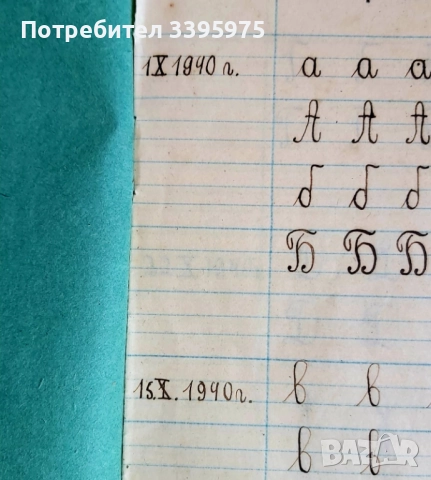 Потребител 3395975
1 X 1940 г. а а а
А А А
б б б
Б Б Б
15.X. 1940г. в в
в в
BAZAR